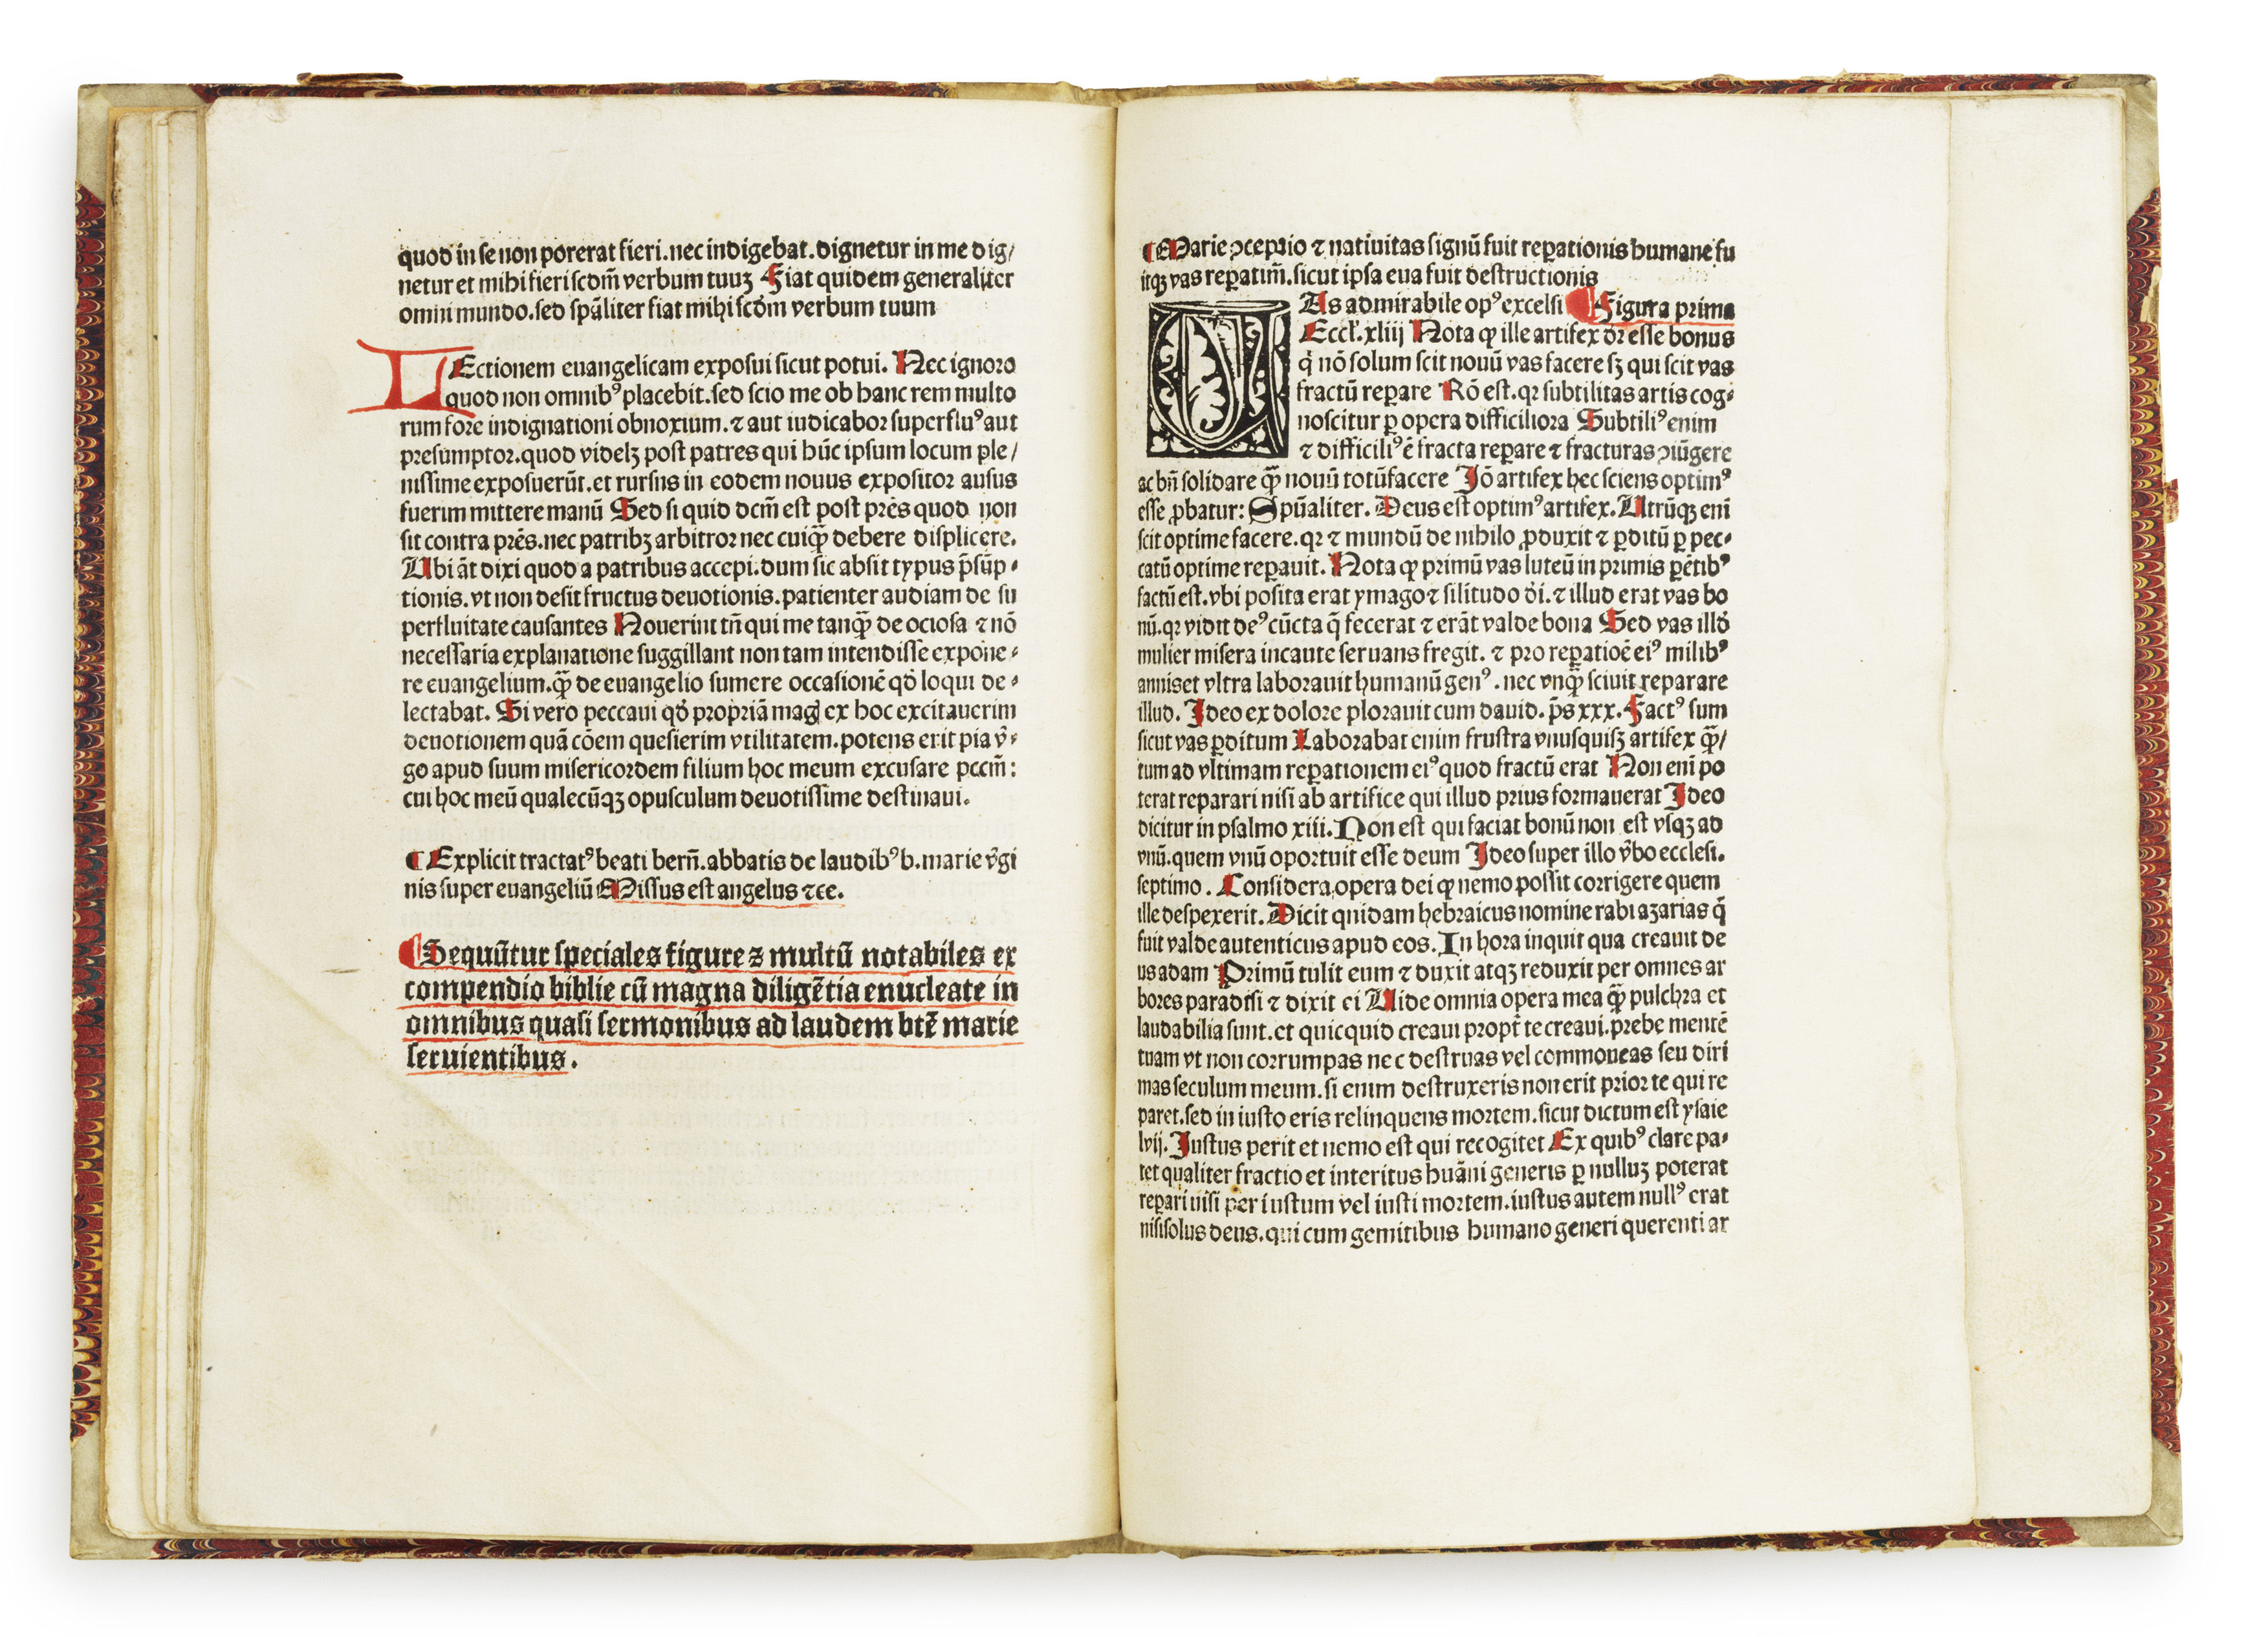 quod in se non poterat fieri.nec indigebat.dignetur in me dig/
netur et mihi fieri scdm̄ verbum tuuȝ Fiat quidem generaliter
omni mundo.sed spāliter fiat mihi scdm̄ verbum tuum
LEctionem euangelicam exposui sicut potui. Nec ignoro
quod non omnibꝰ placebit.sed scio me ob hanc rem multo
rum fore indignationi obnoxium.⁊ aut iudicabor superfluꝰ aut
presumptor.quod videlȝ post patres qui hūc ipsum locum ple/
nissime exposuerūt.et rursns in eodem nouus expositor ausus
fuerim mittere manū Sed si quid dcm̄ est post pr̄es quod non
sit contra pr̄es.nec patribȝ arbitror nec cuiqꝫ̄ debere displicere.
Ubi āt dixi quod a patribus accepi.dum sic absit typus p̄sūp⸗
tionis.vt non desit fructus deuotionis.patienter audiam de su
perfluitate causantes Nouerint tn̄ qui me tanqꝫ̄ de ociosa ⁊ nō
necessaria explanatione suggillant non tam intendisse expone⸗
re euangelium.qꝫ̄ de euangelio sumere occasionē qd̄ loqui de⸗
lectabat. Si vero peccaui qd̄ propriā mag̨ ex hoc excitauerim
deuotionem quā cōem quesierim vtilitatem.potens erit pia v̄⸗
go apud suum misericordem filium hoc meum excusare pccm̄:
cui hoc meū qualecūqꝫ opusculum deuotissime destinaui.
¶ Explicit tractatꝰ beati bern̄.abbatis de laudibꝰ b.marie v̄gi
nis super euangeliū Missus est angelus ⁊cc.
¶Sequūtur speciales figure ⁊ multū notabiles ex
compendio biblie cū magna diligētia enucleate in
omnibus quasi sermonibus ad laudem btē marie
seruientibus.
¶Marie ꝯceptio ⁊ natiuitas signū fuit reꝑationis humane fu
itqꝫ vas reꝑatiuū.sicut ipsa eua fuit destructionis
VAs admirabile opꝰ excelsi ¶Figura prima
Eccl̄.xliij Nota ꝙ ille artifex dr̄ esse bonus
q̄ nō solum scit nouū vas facere sȝ qui scit vas
fractū reꝑare Rō est.qꝛ subtilitas artis cog⸗
noscitur ꝑ opera difficiliora Subtiliꝰ enim
⁊ difficiliꝰ ē fracta reꝑare ⁊ fracturas ꝯiūgere
ac bn̄ solidare qꝫ̄ nouū totū facere Iō artifex hec sciens optimꝰ
esse ꝓbatur: Spūaliter. Deus est optimꝰ artifex.Utrūqꝫ eni
scit optime facere.qꝛ ⁊ mundū de nihilo ꝓduxit ⁊ ꝑditū ꝑ pec⸗
catū optime reꝑauit. Nota ꝙ primū vas luteū in primis ꝑētibꝰ
factū est.vbi posita erat ymago ⁊ silitudo dī.⁊ illud erat vas bo
nū.qꝛ vidit deꝰ cūcta q̄ fecerat ⁊ erāt valde bona Sed vas illd̄
mulier misera incaute seruans fregit.⁊ pro reꝑatioē eiꝰ milibꝰ
annis et vltra laborauit humanū genꝰ.nec vnqꝫ̄ sciuit reparare
illud. Ideo ex dolore plorauit cum dauid.p̄s xxx. Factꝰ sum
sicut vas ꝑditum Laborabat enim frustra vnusquisȝ artifex qꝫ̄/
tum ad vltimam reꝑationem eiꝰ quod fractū erat Non eni po
terat reparari nisi ab artifice qui illud prius formauerat Ideo
dicitur in psalmo xiii. Non est qui faciat bonū non est vsqꝫ ad
vnū.quem vnū oportuit esse deum Ideo super illo v̄bo ecclesi.
septimo. Considera opera dei ꝙ nemo possit corrigere quem
ille despexerit. Dicit quidam hebraicus nomine rabi azarias q̄
fuit valde autenticus apud eos.In hora inquit qua creauit de
us adam Primū tulit eum ⁊ duxit atqꝫ reduxit per omnes ar
bores paradisi ⁊ dixit ei Uide omnia opera mea qꝫ̄ pulchra et
laudabilia sunt.et quicquid creaui propt̄ te creaui.prebe mentē
tuam vt non corrumpas nec destruas vel commoueas seu diri
mas seculum meum.si enim destruxeris non erit prior te qui re
paret.sed in iusto eris relinquens mortem.sicut dictum est ysaie
lvij. Iustus perit et nemo est qui recogitet Ex quibꝰ clare pa⸗
tet qualiter fractio et interitus huāni generis ꝑ nulluȝ poterat
reꝑari nisi per iustum vel iusti mortem.iustus autem nullꝰ erat
nisi solus deus.qui cum gemitibus humano generi querenti ar